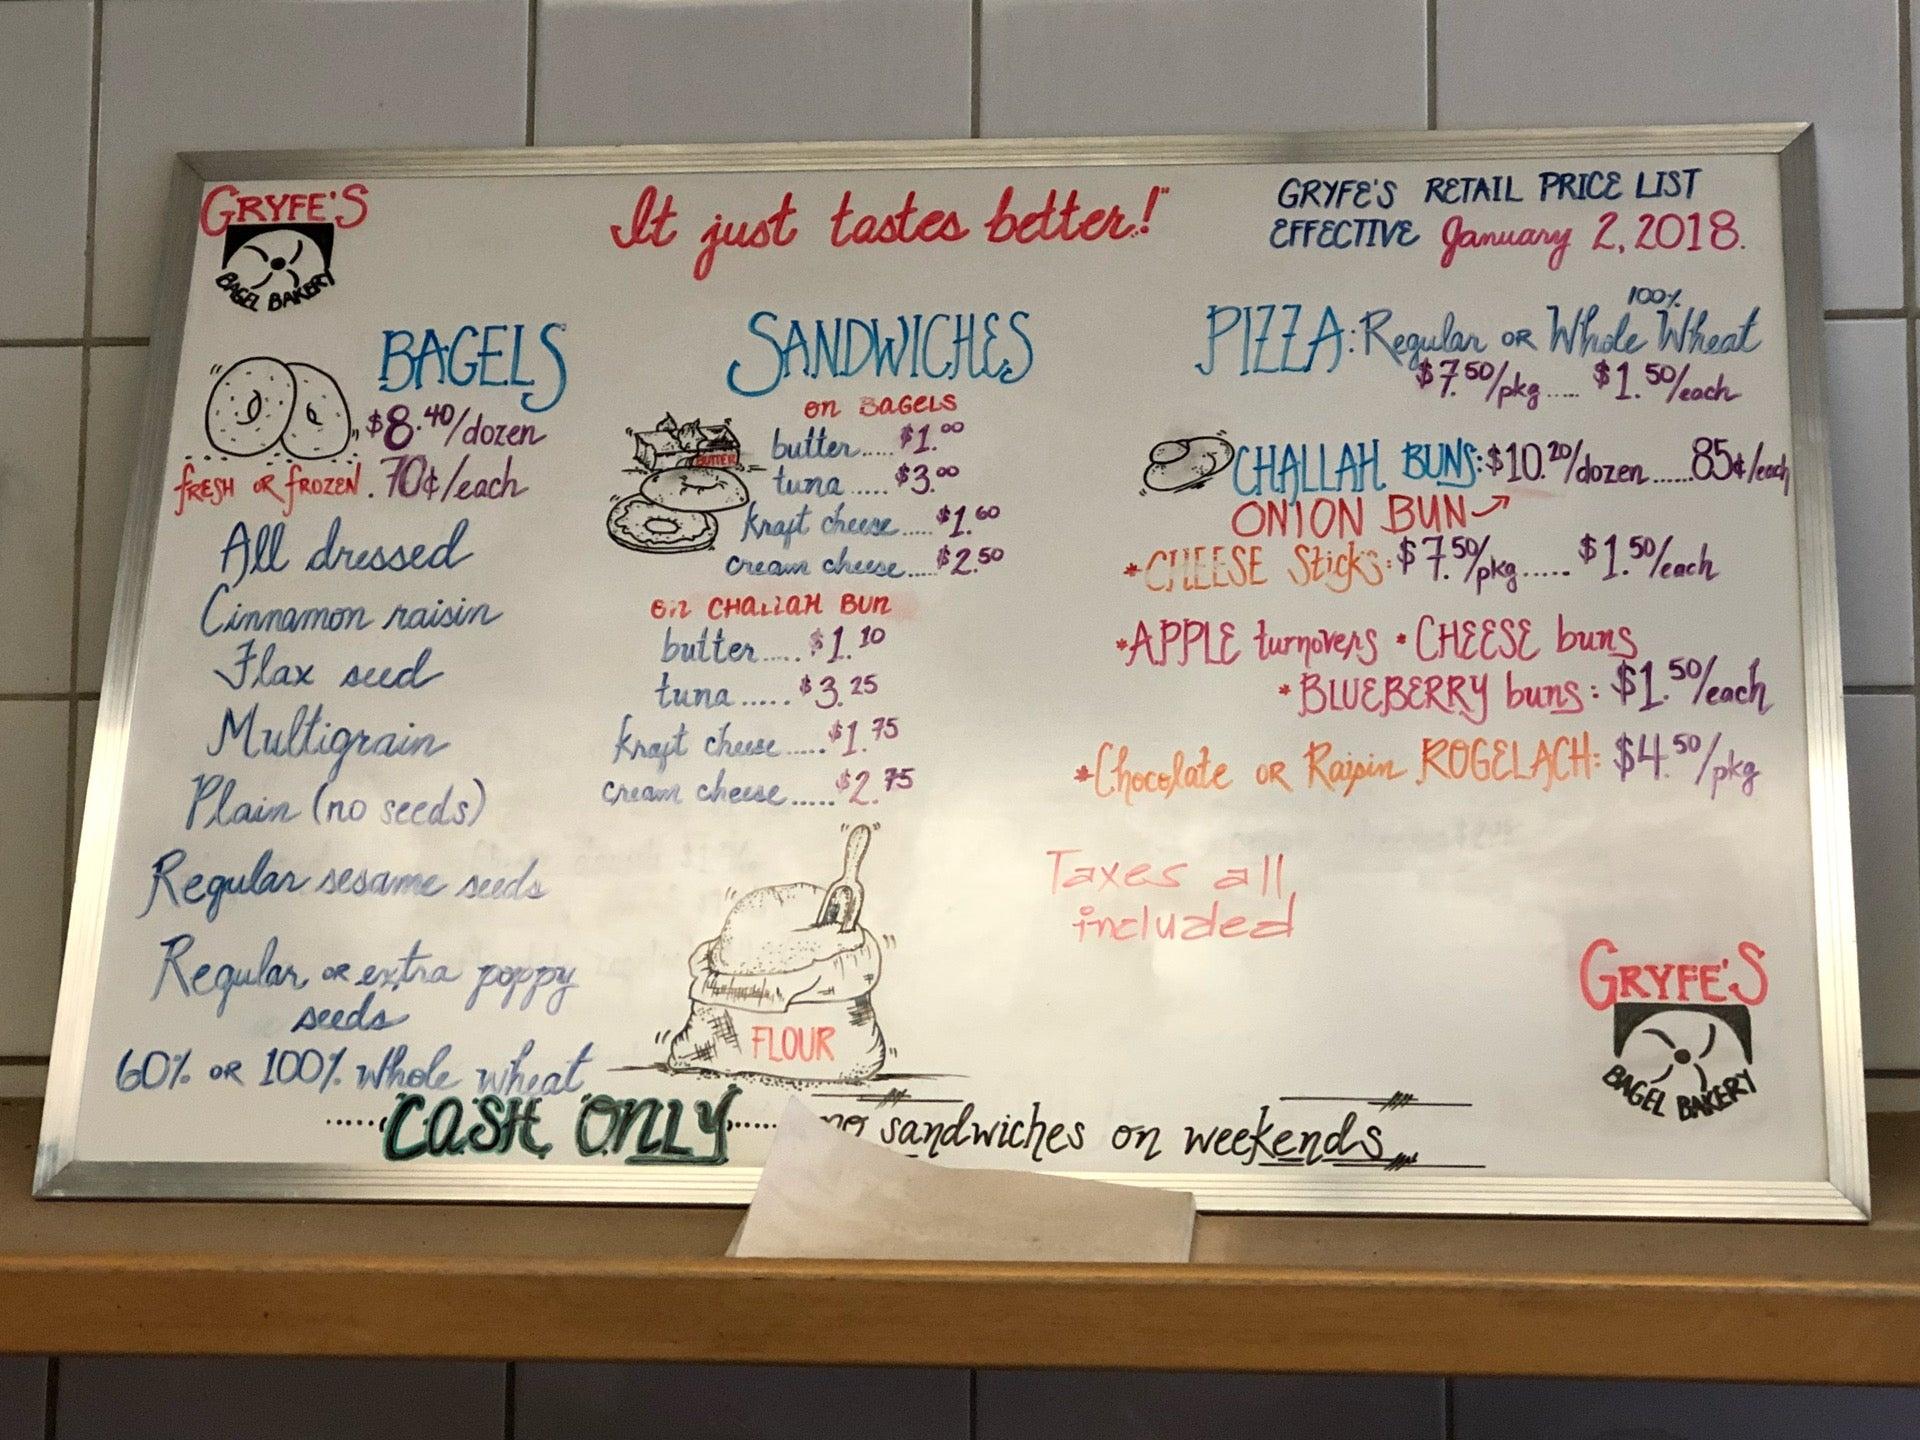 GRYFE'S
BAGEL BAKERY
It just tastes better!"
GRYFE'S RETAIL PRICE LIST
EFFECTIVE January 2, 2018.
BAGELS
$8.40/dozen
fRESH OR fROZEN. 70¢/each
All dressed
Cinnamon raisin
Flax seed
Multigrain
Plain (no seeds)
Regular sesame seeds
Regular OR extra poppy
seeds
60% OR 100% whole wheat
SANDWICHES
on BAGELS
BUTTER
butter.....$1.00
tuna.....$3.00
kraft cheese.....$1.60
cream cheese....$2.50
on CHALLAH BUN
butter.....$1.10
tuna......$3.25
kraft cheese.....$1.75
cream cheese.....$2.75
FLOUR
PIZZA: Regular OR 100% Whole Wheat
$7.50/pkg..... $1.50/each
CHALLAH BUNS: $10.20/dozen......85¢/each
ONION BUN
*CHEESE Sticks: $7.50/pkg..... $1.50/each
*APPLE turnovers *CHEESE buns
*BLUEBERRY buns: $1.50/each
*Chocolate OR Raisin ROGELACH: $4.50/pkg
Taxes all
included
GRYFE'S
BAGEL BAKERY
.....CASH ONLY..... no sandwiches on weekends